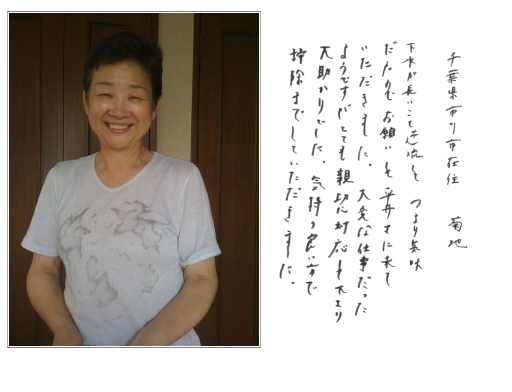 千葉県市川市在住　菊地
下水が長いこと逆流して つまり気味
だったので お願いして 平井さんに来て
いただきました。大変な仕事だった
ようですが とても親切に対応して下さり
大助かりでした。気持の良い方で
掃除までしていただきました。